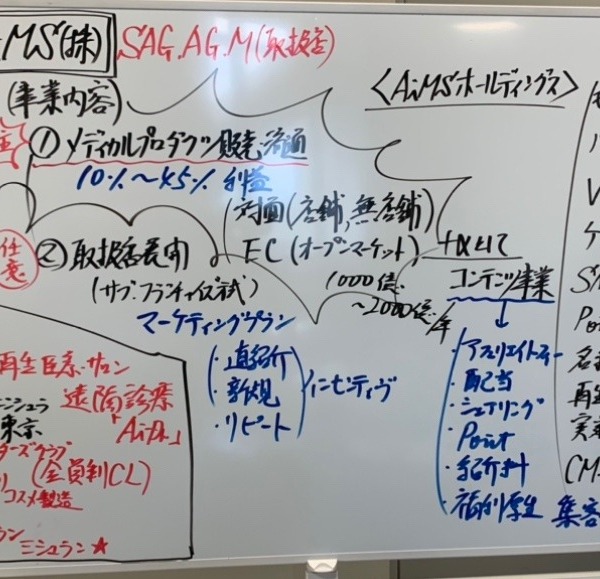 MS(株) SAG.AG.M(取扱店)
(事業内容)
<AiMSホールディングス>
① メディカルプロダクツ販売流通
10%〜45% 利益
対面(店舗,無店舗)
任意
② 取扱店展開
EC(オープンマーケット)
+αとして
(サブ・フランチャイズ式)
1000億〜2000億/年
コンテンツ事業
マーケティングプラン
・直紹介
・新規
・リピート
インセンティヴ
・アフリエイトフィー
・配当
・シェアリング
・Point
・紹介料
・福利厚生
再生医療・サロン
遠隔診療
東京
「AiDr.」
(会員制CL)
コスメ製造
ミシュラン★
Poi
再生
CM
集客